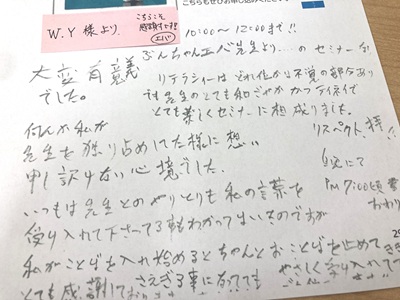 こちらもぜひお申し込みくだ
W.Y 様より
こちらこそ
感謝です
エバ
10:00〜12:00まで!!
ぶんちゃんエバ先生より...のセミナーが
大変有意義
でした。
リテラシーはどれ位か不覚の部分あり
先生のとても和やかかつ
とても楽しくセミナーに相成りました。
何んか私が
リスペクト
先生を独り占めしてた様に想い
申し訳けない心境でした。
自宅にて
PM 7:00頃
いつもは先生とのやりとりも私の言葉を
おわり
受け入れて下さってる事もわかってはいるのですが
私がことばを入れ始めるとちゃんとおことばを止めて
さえぎる事になっても
やさしく受け入れて
とても感謝して